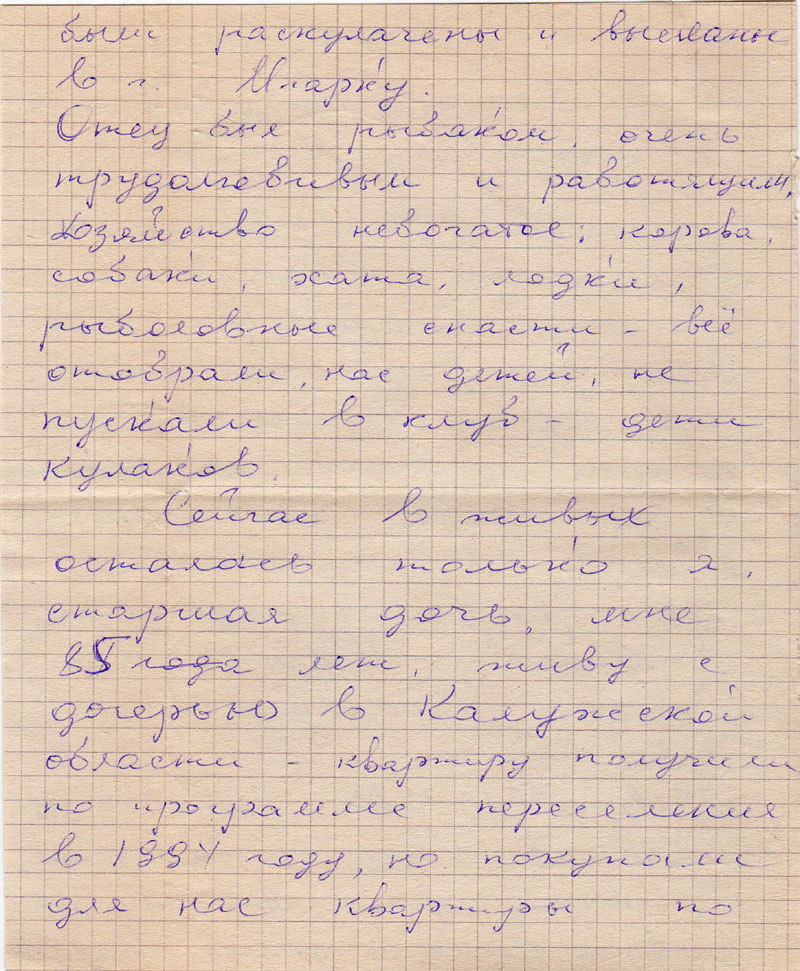 были раскулачены и высланы
в г. Игарку.
Отец был рыбаком, очень
трудолюбивым и работящим.
Хозяйство небогатое: корова,
собаки, хата, лодки,
рыболовные снасти – всё
отобрали, нас детей, не
пускали в клуб – дети
кулаков.
Сейчас в живых
осталась только я,
старшая дочь, мне
85 года лет, живу с
дочерью в Калужской
области – квартиру получили
по программе переселения
в 1994 году, но покупали
для нас квартиры по